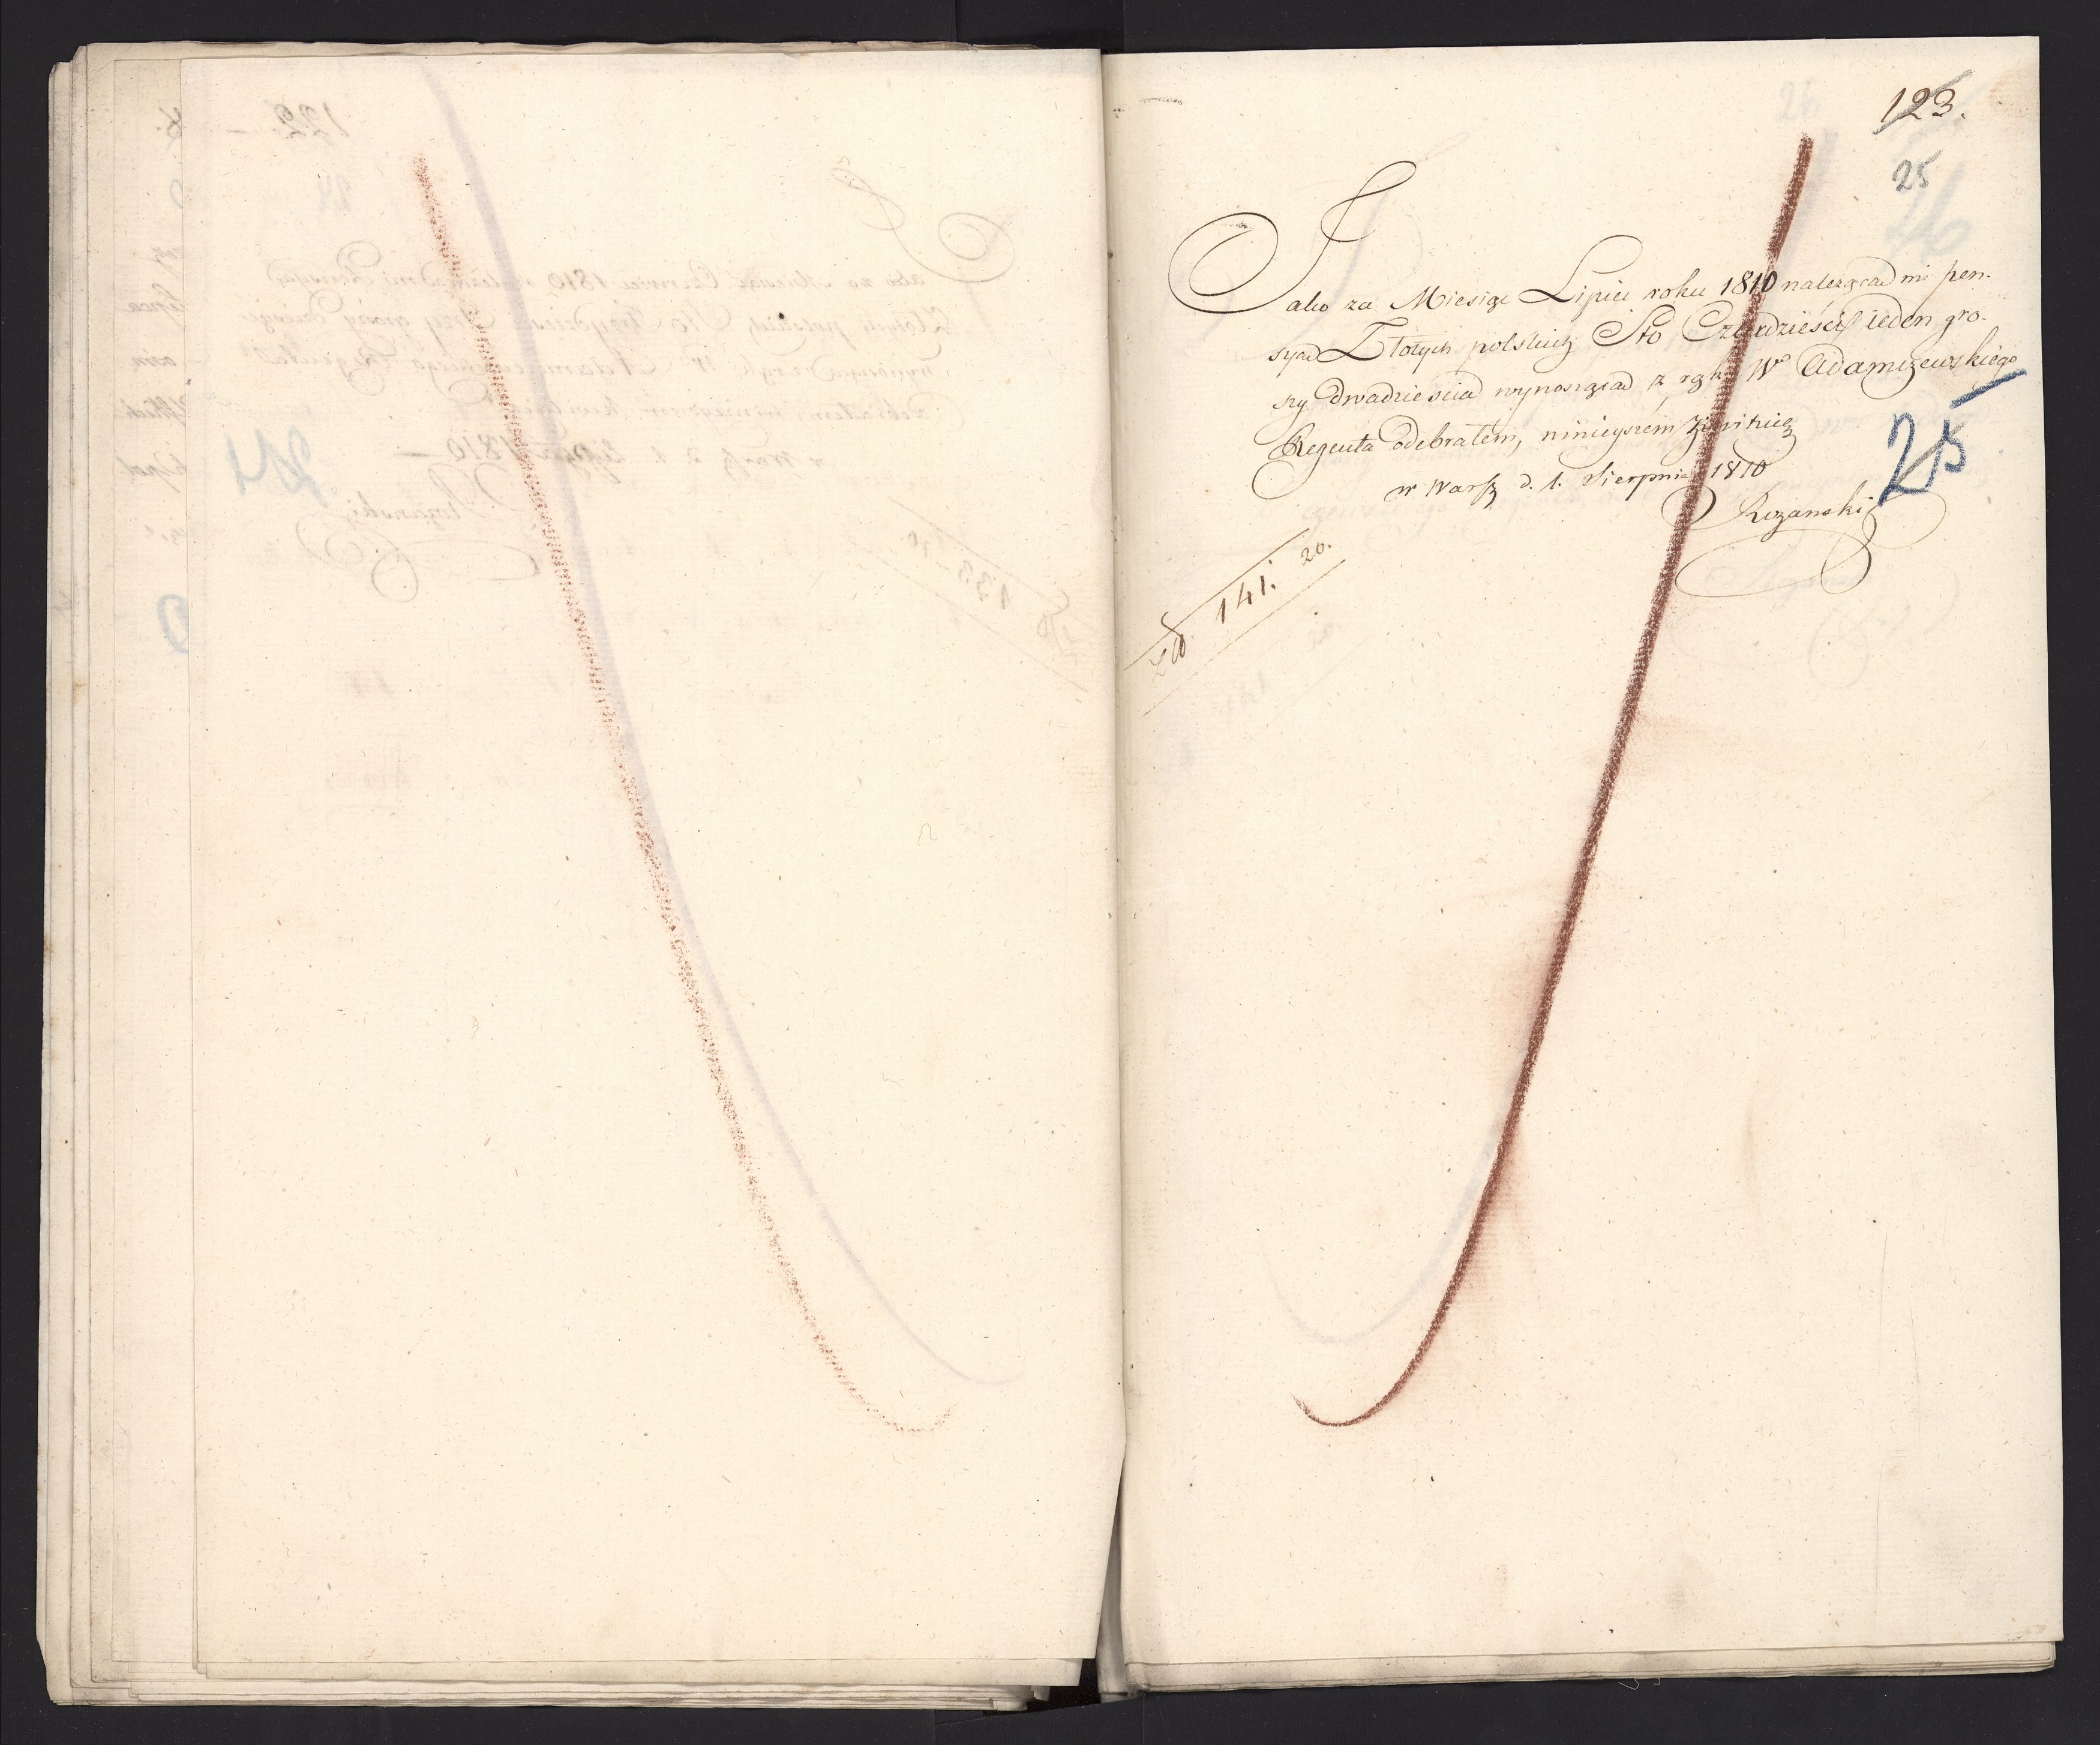 123.
25
Jako za Miesiąc Lipiec roku 1810 należącą mi pen-
syą Złotych polskich Sto Czterdzieści ieden gro-
szy dwadzieścia wynoszącą z rąk W° Adamczewskiego
Regenta odebrałem, ninieyszem kwituię
w Warsz d. 1. Sierpnia 1810
25
Rożanski
Złł. 141. 20.